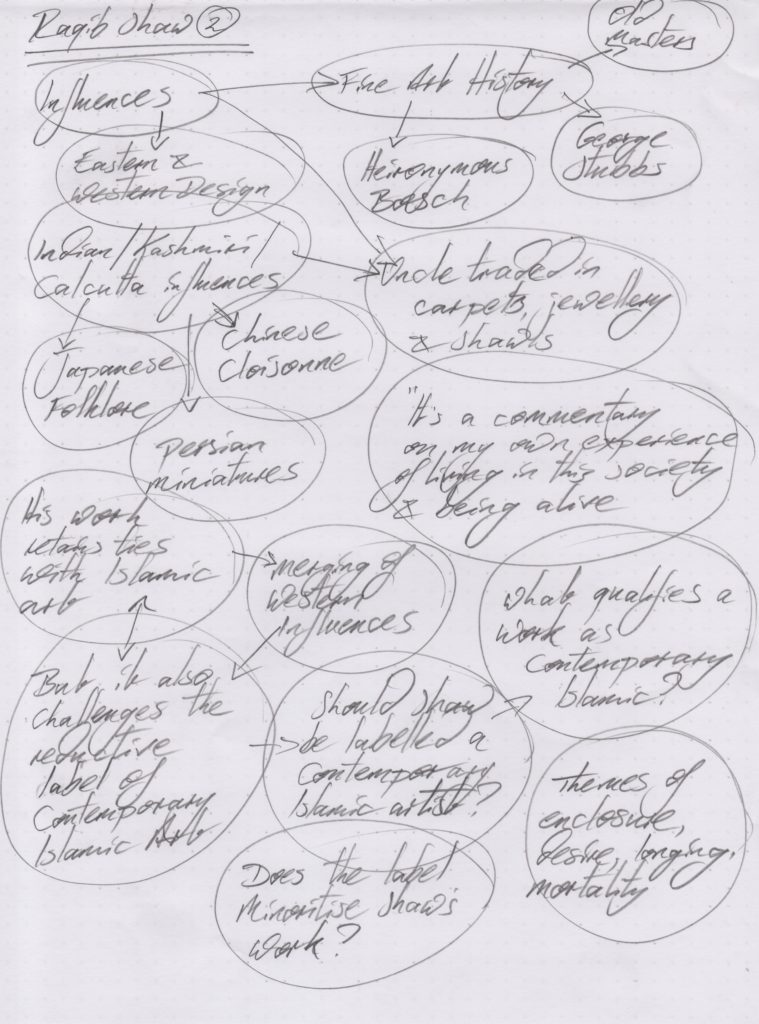 Raqib Shaw ②
Old
Masters
Influences
Fine Art History
George
Stubbs
Eastern &
Western Design
Heironymous
Bosch
Indian/Kashmiri/
Calcutta influences
Uncle traded in
carpets, jewellery
& shawls
Chinese
Cloisonne
Japanese
Folklore
Persian
miniatures
"It's a commentary
on my own experience
of living in this society
& being alive
His work
retains ties
with Islamic
art
Merging of
Western
influences
What qualifies a
work as
Contemporary
Islamic?
But it also
challenges the
reductive
label of
Contemporary
Islamic Art
Should Shaw
be labelled a
Contemporary
Islamic artist?
Themes of
enclosure,
desire, longing,
mortality
Does the label
Minoritise Shaw's
work?